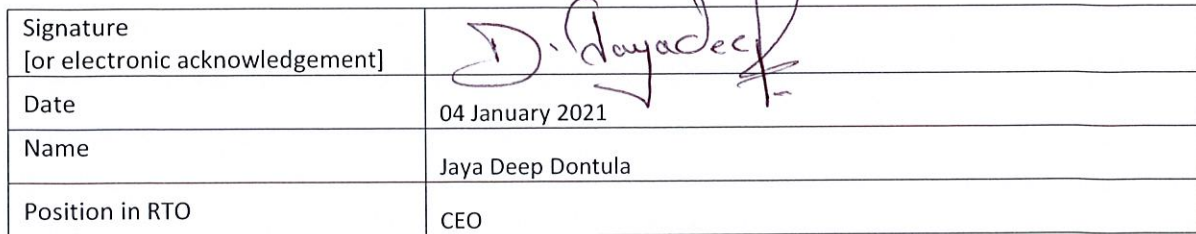 Signature
[or electronic acknowledgement]
D. Jayadeep
Date
04 January 2021
Name
Jaya Deep Dontula
Position in RTO
CEO